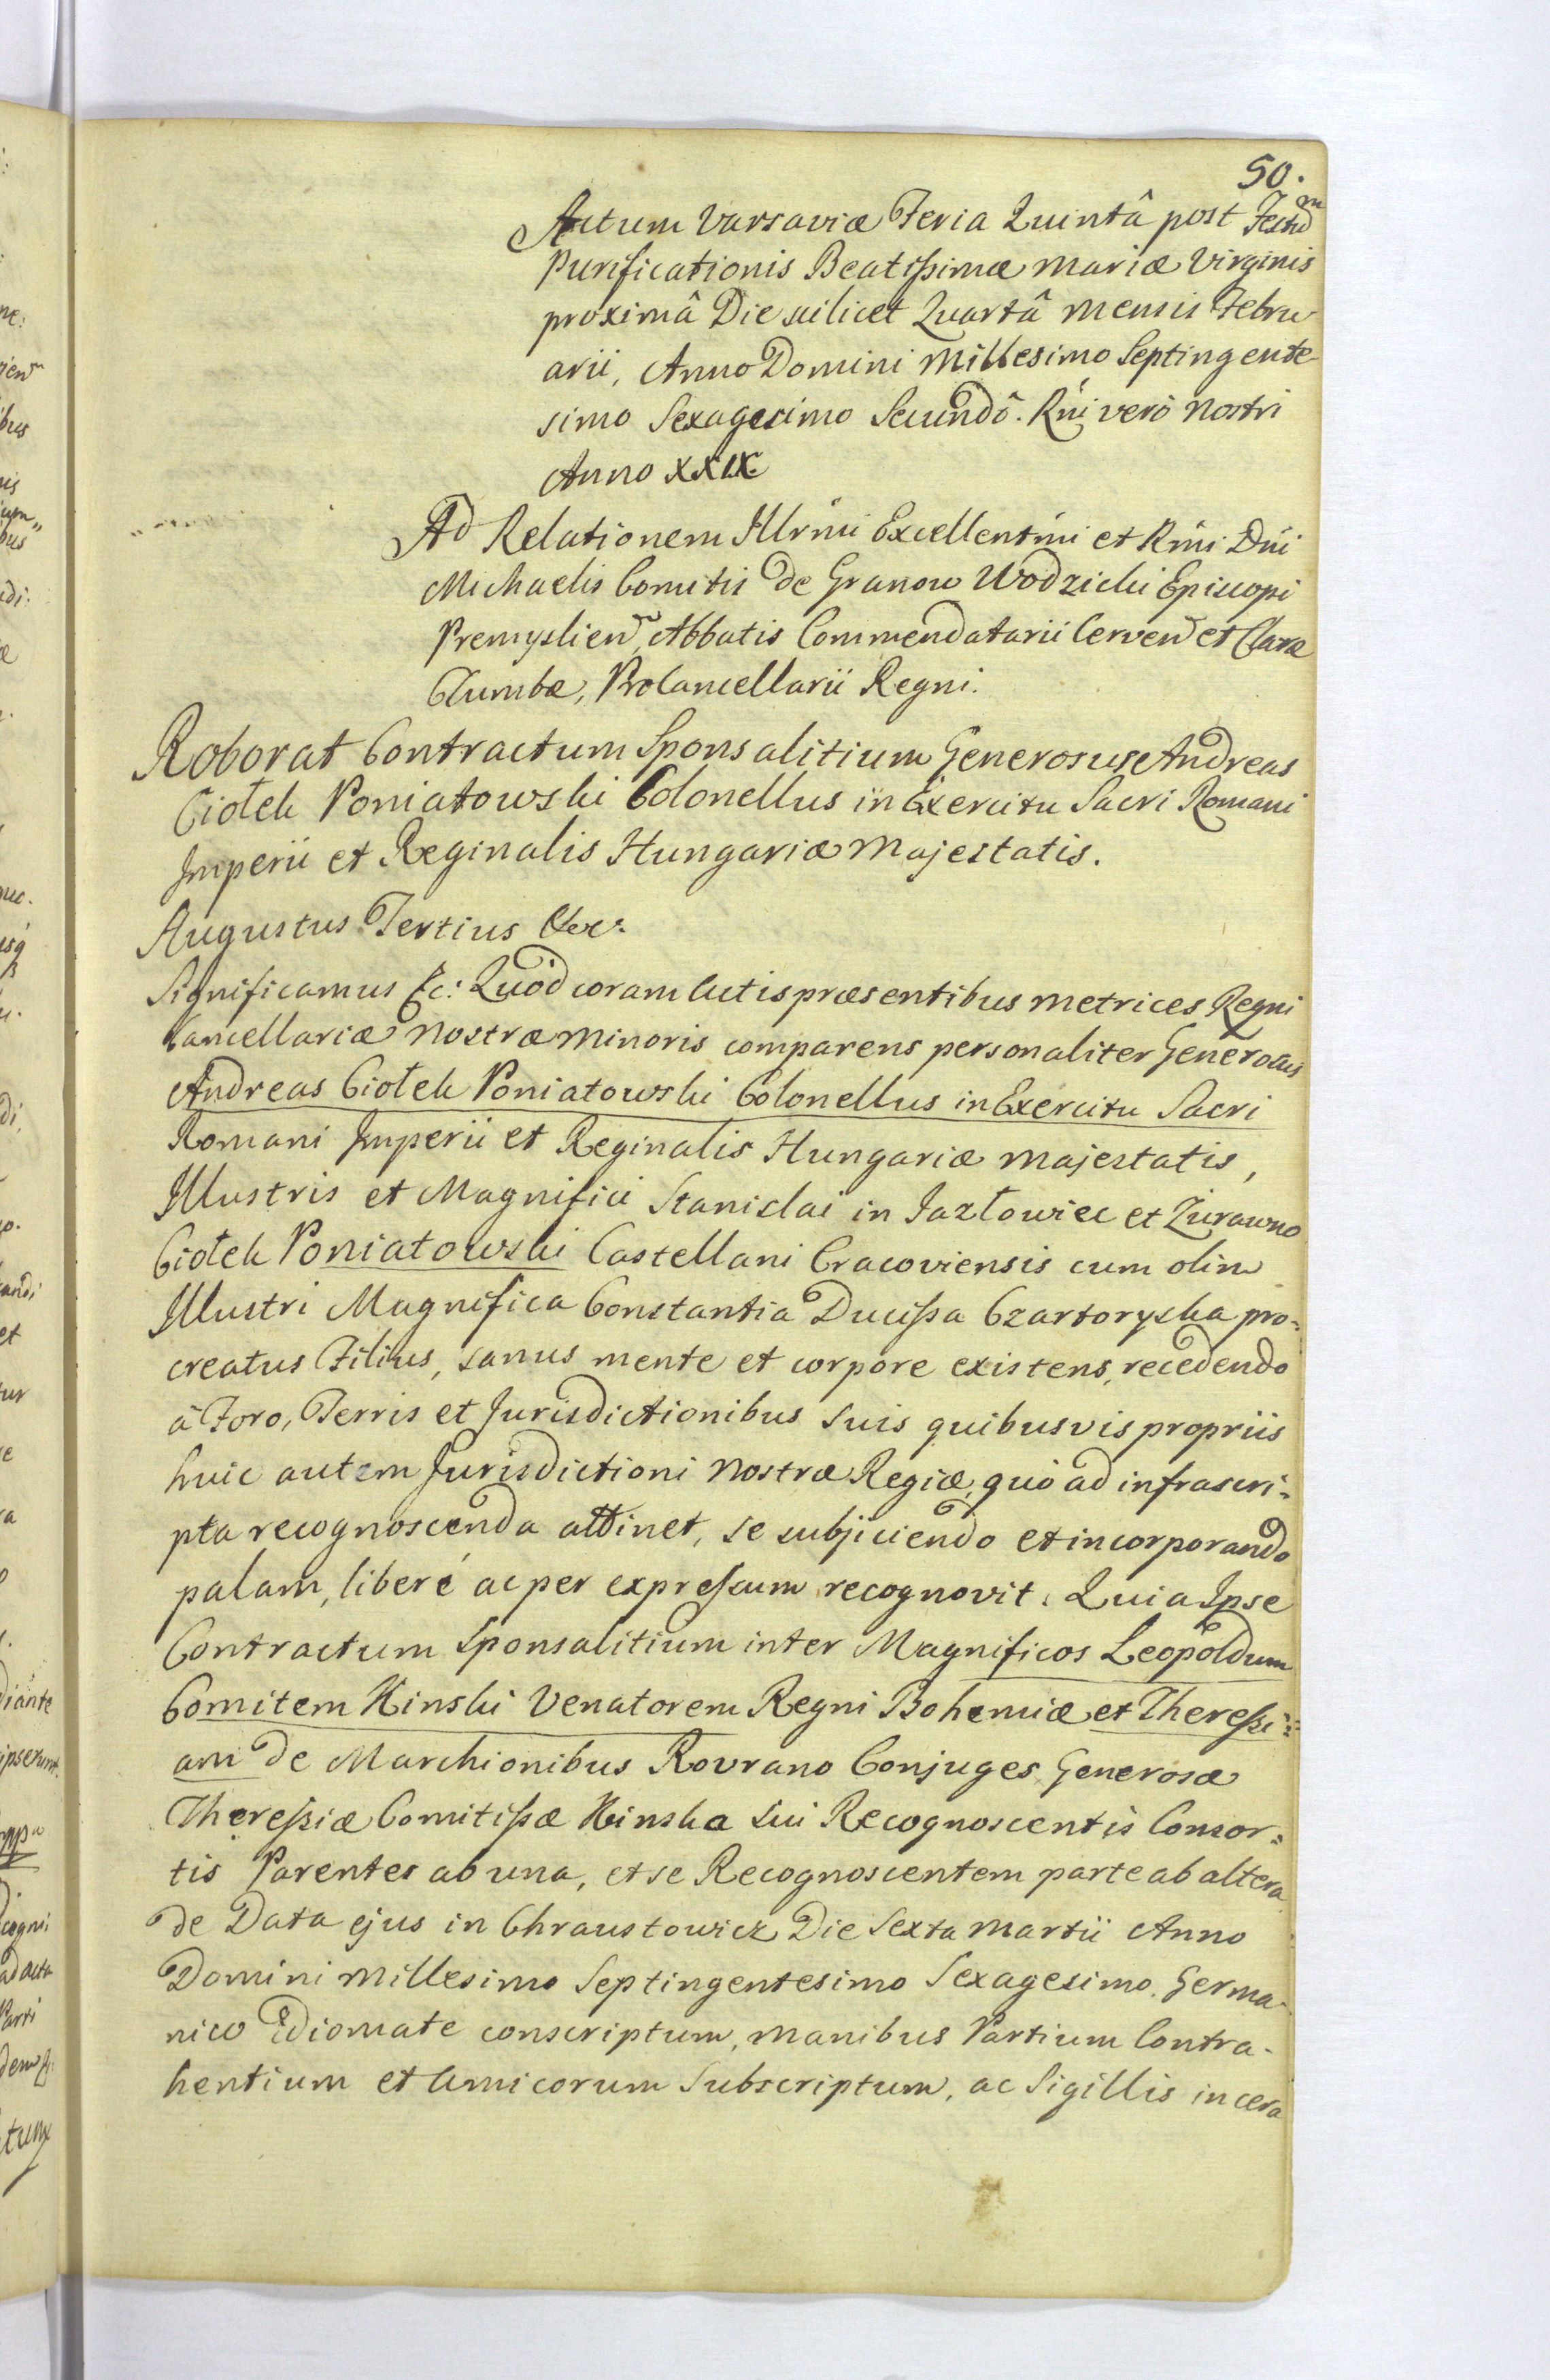 50.
Actum Varsaviæ Feria Quintâ post Festũ
Purificationis Beatissimæ Mariæ Virginis
proximâ Die scilicet Quartâ Mensis Febru
arii, Anno Domini Millesimo Septingente-
simo Sexagesimo Secundô. Rńi verò Nostri
Anno XXIX
Ad Relationem Illrm̃i Excellentm̃i et Rm̃i Dńi
Michaelis Comitis de Granow Wodzicki Episcopi
Premyslien̄, Abbatis Commendatarii Cerven̄ et Claræ
Tumbæ, ProCancellarii Regni.
Roborat Contractum Sponsalitium Generosus Andreas
Ciołek Poniatowski Colonellus in Exercitu Sacri Romani
Imperii et Reginalis Hungariæ Majestatis.
Augustus Tertius &c:
Significamus &c: Quòd coram Actis præsentibus Metrices Regni
Cancellariæ Nostræ Minoris comparens personaliter Generosus
Andreas Ciołek Poniatowski Colonellus in Exercitu Sacri
Romani Imperii et Reginalis Hungariæ Majestatis,
Illustris et Magnifici Stanislai in Jazłowiec et Żurawno
Ciołek Poniatowski Castellani Cracoviensis cum olim
Illustri Magnifica Constantia Ducissa Czartoryska pro-
creatus Filius, sanus mente et corpore existens, recedendo
â Foro, Terris et Jurisdictionibus suis quibusvis propriis
huic autem Jurisdictioni Nostræ Regiæ, quò ad infrascri-
pta recognoscenda attinet, se subjiciendo et incorporando
palam, liberé ac per expressum recognovit. Quia Ipse
Contractum Sponsalitium inter Magnificos Leopoldum
Comitem Kinski Venatorem Regni Bohemiæ et Theressi-
am de Marchionibus Rovrano Conjuges, Generosæ
Theressiæ Comitissæ Kinska sui Recognoscentis Consor-
tis Parentes ab una, et se Recognoscentem parte ab altera
de Data ejus in Chraustowicz Die Sexta Martii Anno
Domini Millesimo Septingentesimo Sexagesimo. Germa-
nico Idiomate conscriptum, manibus Partium Contra-
hentium et Amicorum Subscriptum, ac Sigillis in cera